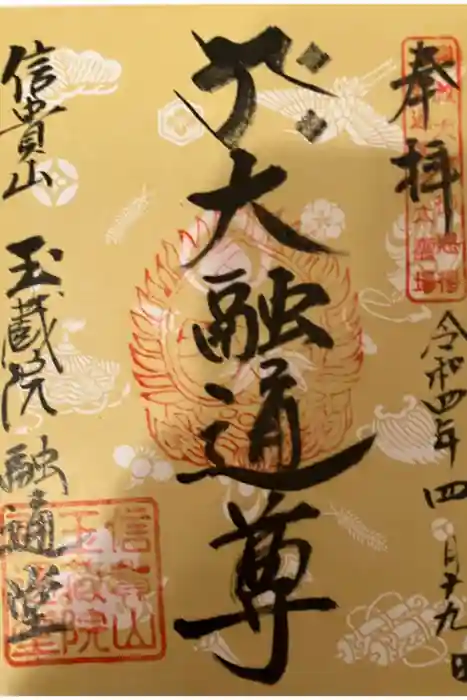 奉拝
令和四年四月十九日
大融通尊
信貴山
玉蔵院 融通堂
信貴山
玉蔵院